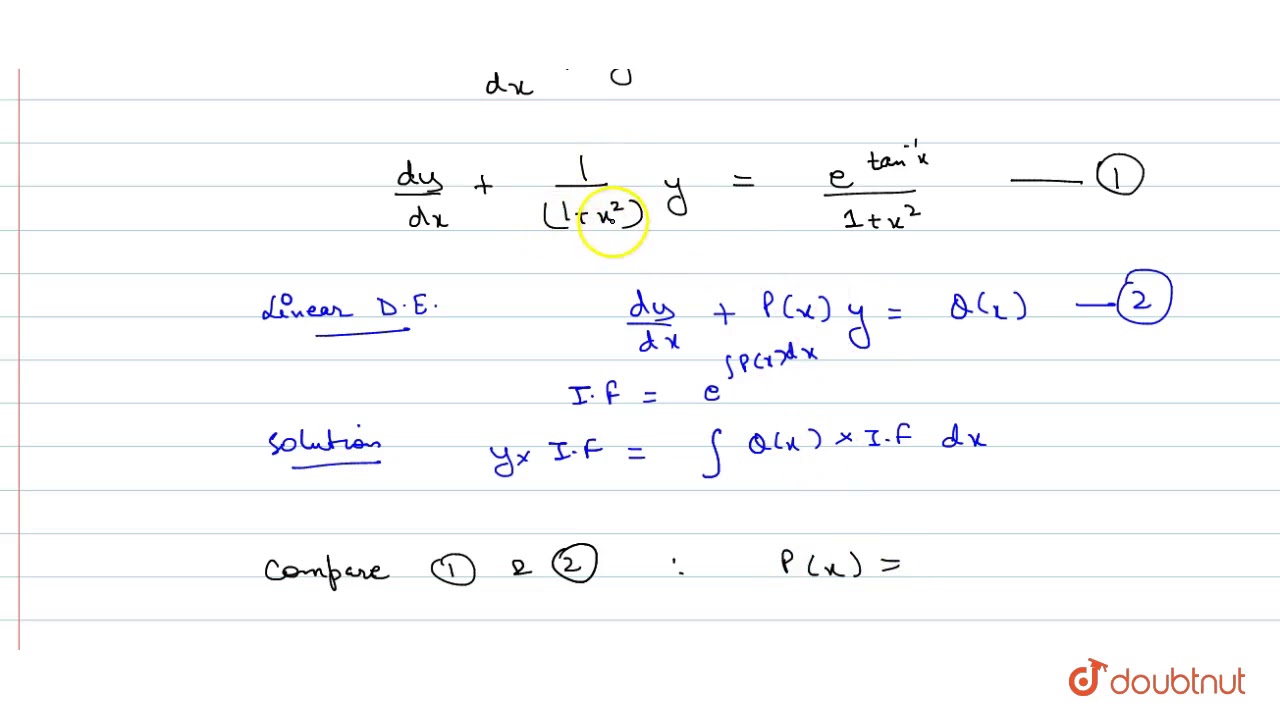 dx y
dy/dx + 1/(1+x²) y = e^(tan⁻¹x)/(1+x²) — ①
Linear D.E. dy/dx + P(x) y = Q(x) — ②
I.F = e^(∫P(x)dx)
Solution y × I.F = ∫ Q(x) × I.F dx
Compare ① & ② ∴ P(x) =
doubtnut